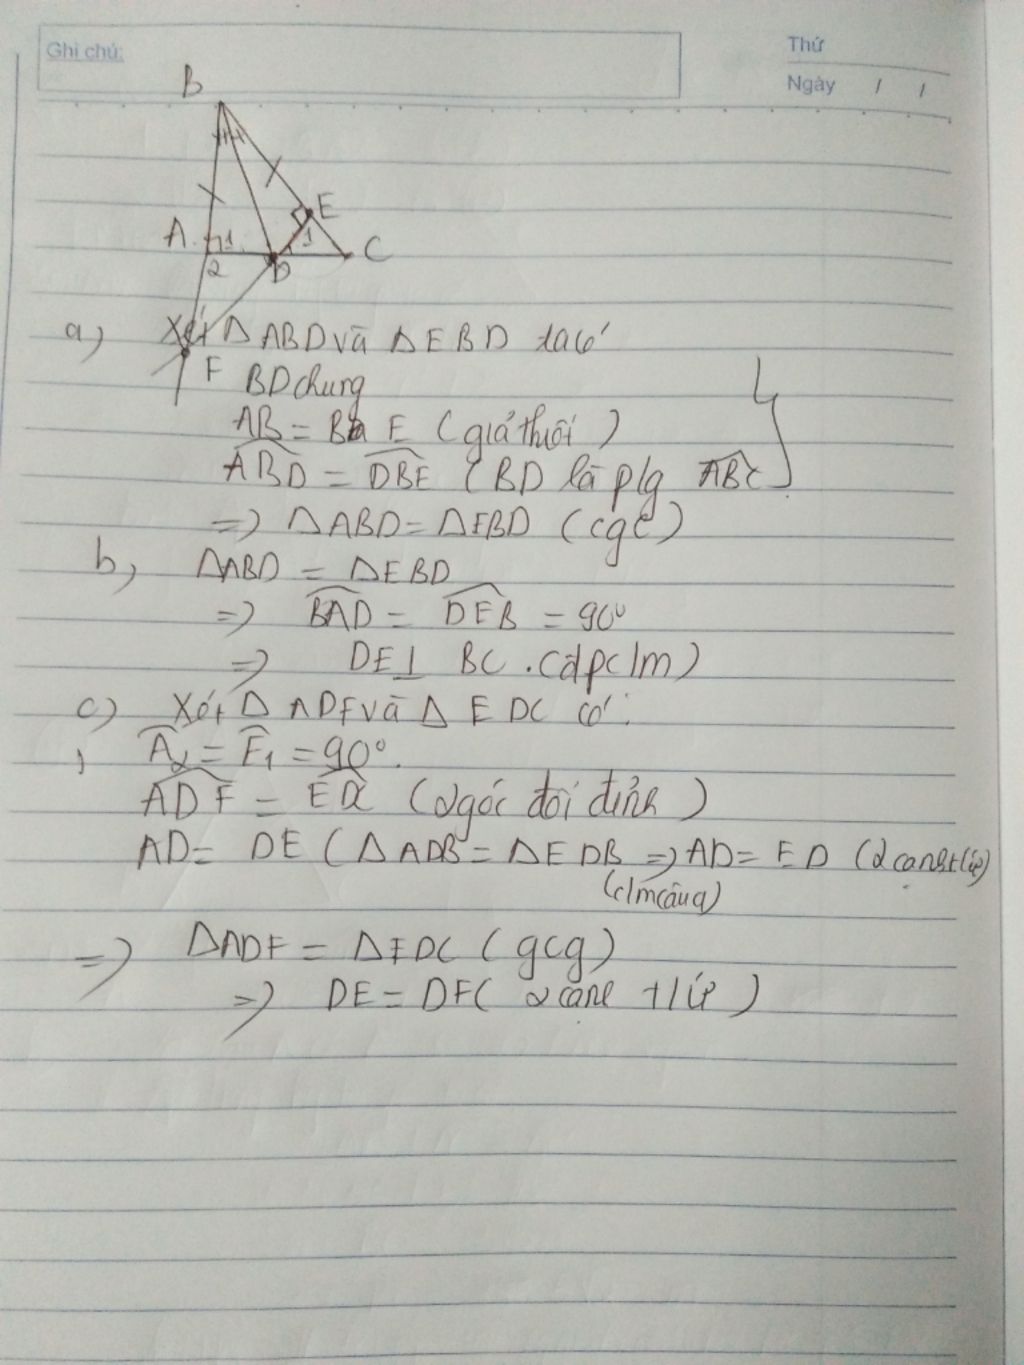 Ghi chú:
Thứ
Ngày / /
B
A 1 E
2 D 1 C
a) Xét Δ ABD và Δ EBD ta có
F BD chung
AB = B E (giả thuối)
ABD = DBE (BD là p/g ABC
=> Δ ABD = Δ EBD (cgc)
b, ΔABD = ΔEBD
=> BAD = DEB = 90°
=> DE⊥ BC . (đpc/m)
c) Xét Δ ADF và Δ EDC có:
A2 = E1 = 90°.
ADF = EDC (2 góc đối đỉnh)
AD = DE (Δ ADB = Δ EDB => AD = ED (2 cạnh t/ứ)
(c/m câu a)
=> ΔADF = ΔEDC (gcg)
=> DE = DF ( 2 cạnh t/ứ )